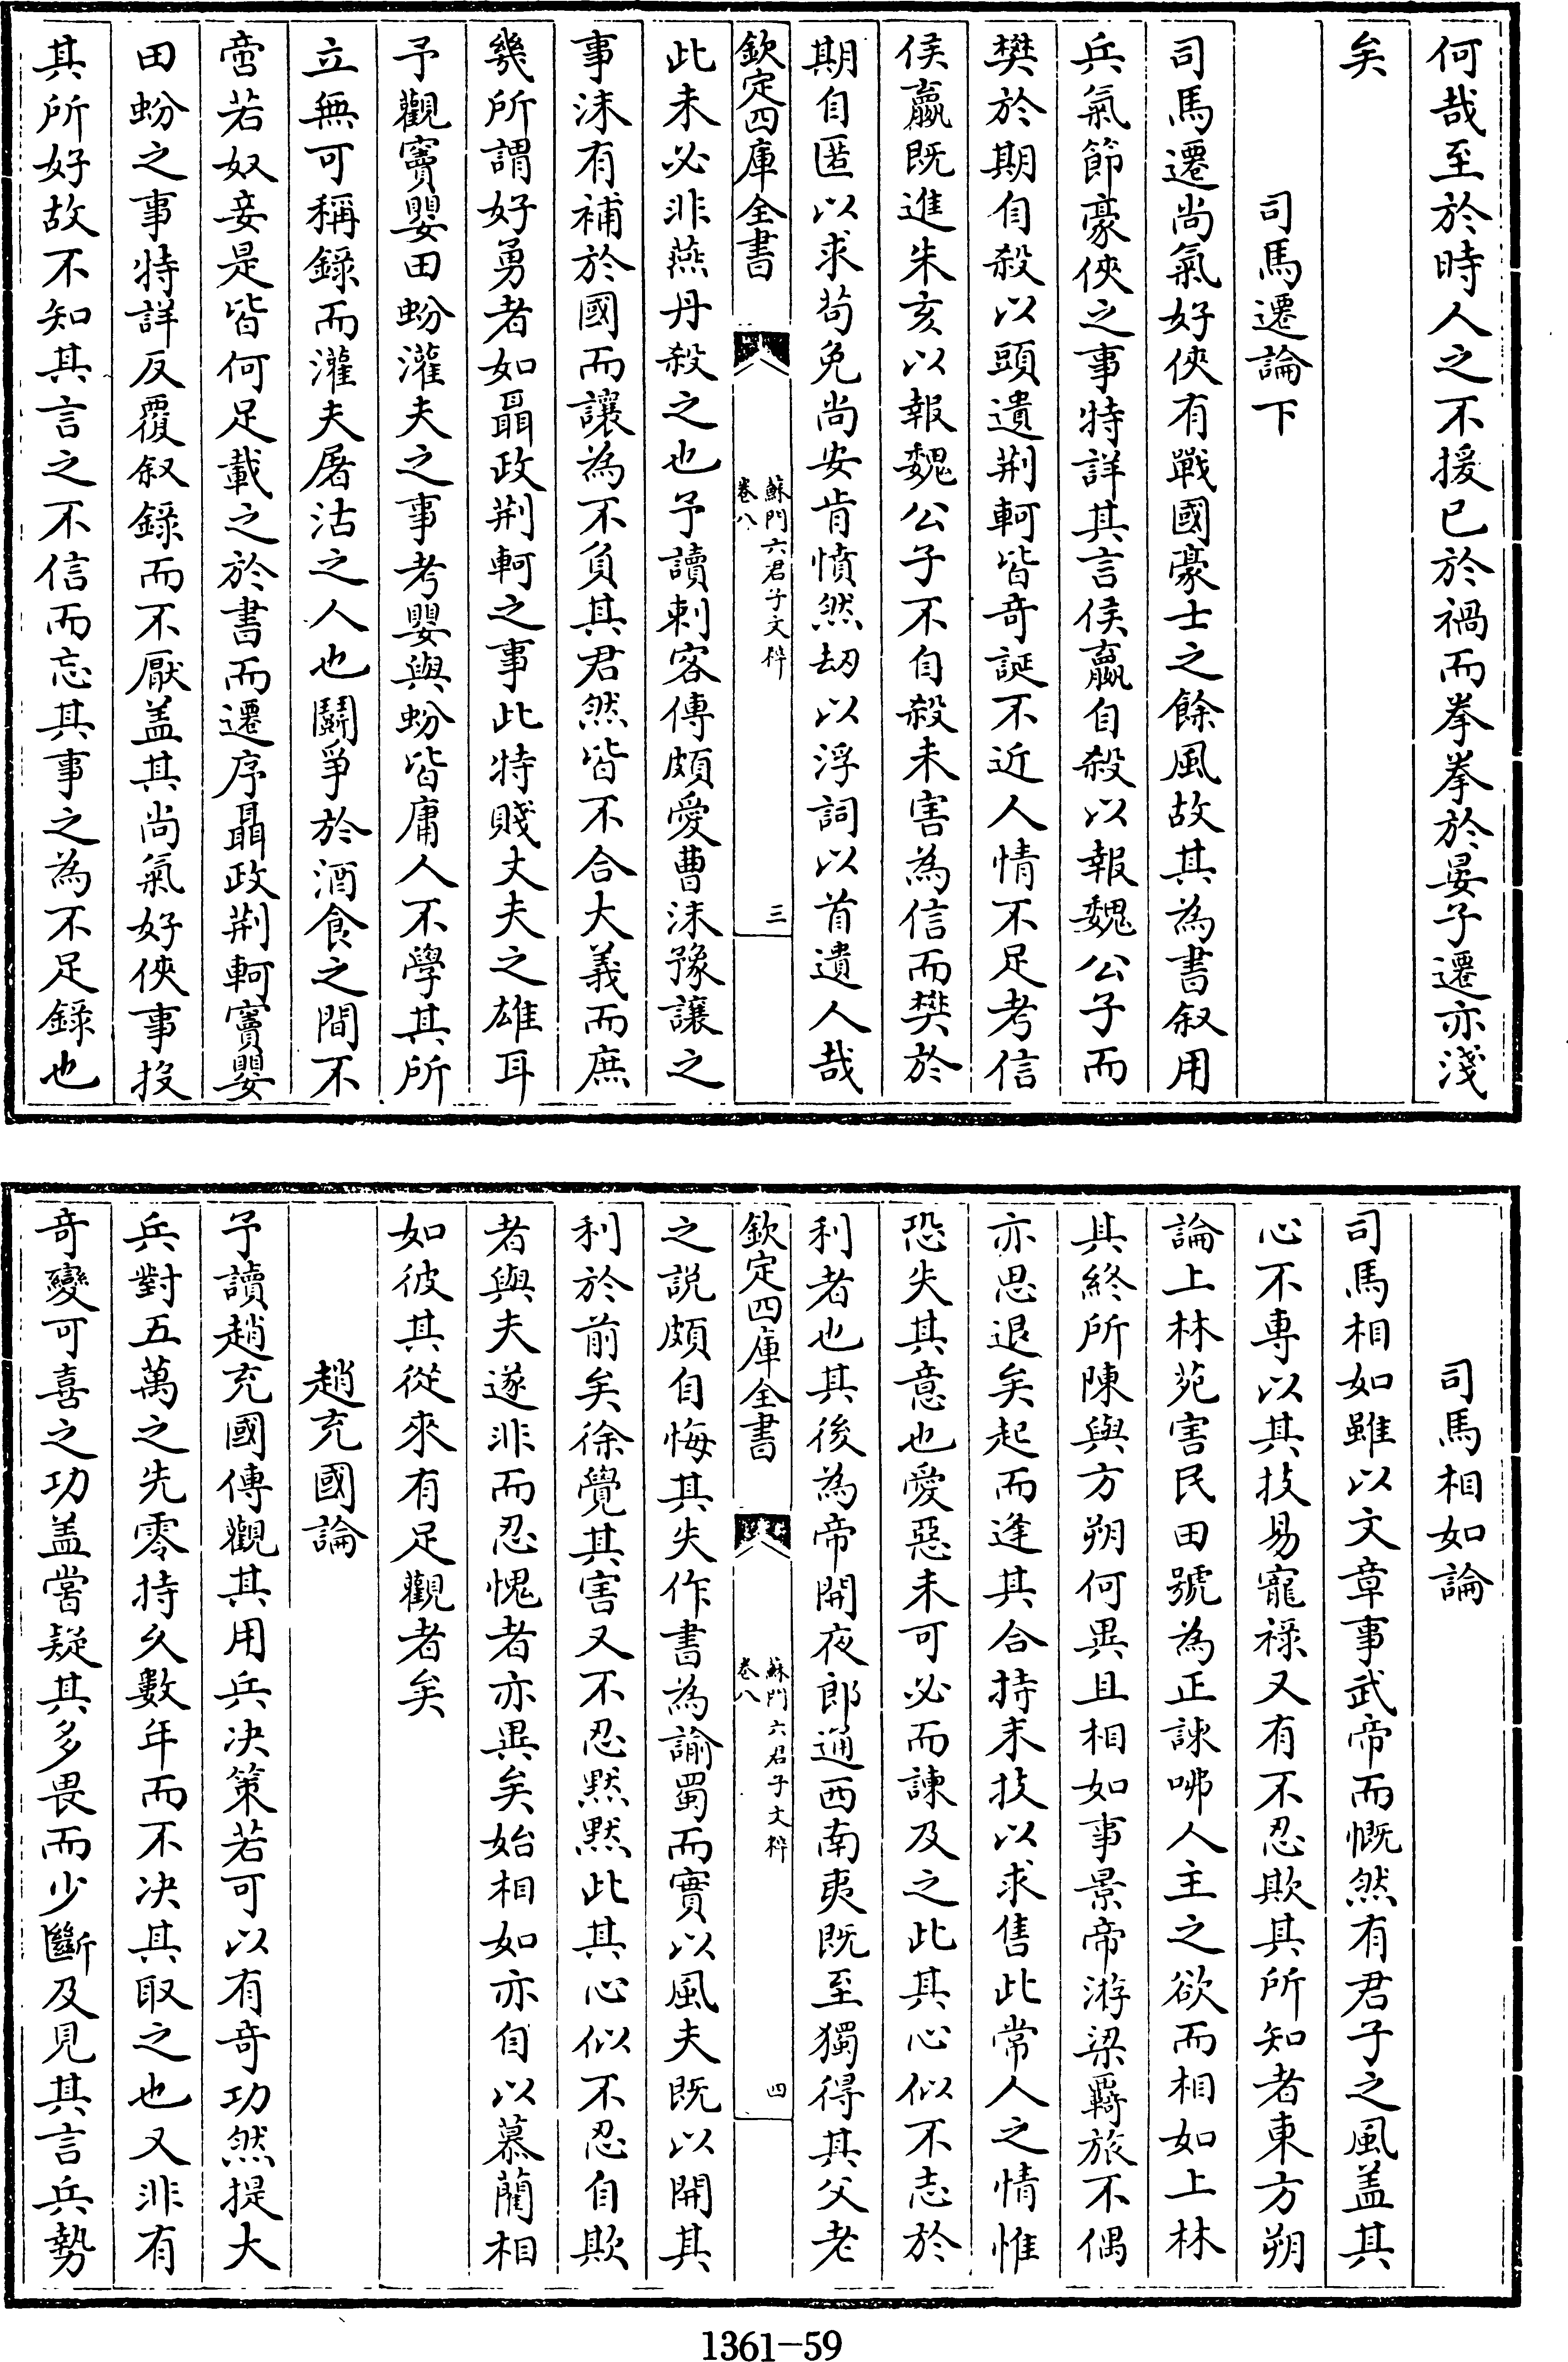 何哉至於時人之不援已於禍而拳拳於晏子遷亦淺
矣
司馬遷論下
司馬遷尚氣好俠有戰國豪士之餘風故其為書叙用
兵氣節豪俠之事特詳其言侯嬴自殺以報魏公子而
樊於期自殺以頭遺荆軻皆奇誕不近人情不足考信
侯嬴既進朱亥以報魏公子不自殺未害為信而樊於
期自匿以求苟免尚安肯憤然刼以浮詞以首遺人哉
欽定四庫全書
蘇門六君子文粹
卷八
三
此未必非燕丹殺之也予讀刺客傳頗愛曹沫豫讓之
事沫有補於國而讓為不負其君然皆不合大義而庶
幾所謂好勇者如聶政荆軻之事此特賤丈夫之雄耳
予觀竇嬰田蚡灌夫之事考嬰與蚡皆庸人不學其所
立無可稱錄而灌夫屠沽之人也鬭爭於酒食之間不
啻若奴妾是皆何足載之於書而遷序聶政荆軻竇嬰
田蚡之事特詳反覆叙錄而不厭盖其尚氣好俠事投
其所好故不知其言之不信而忘其事之為不足錄也
司馬相如論
司馬相如雖以文章事武帝而慨然有君子之風盖其
心不專以其技易寵禄又有不忍欺其所知者東方朔
論上林苑害民田號為正諫咈人主之欲而相如上林
其終所陳與方朔何異且相如事景帝游梁羇旅不偶
亦思退矣起而逢其合持末技以求售此常人之情惟
恐失其意也愛惡未可必而諫及之此其心似不志於
利者也其後為帝開夜郎通西南夷既至獨得其父老
欽定四庫全書
蘇門六君子文粹
卷八
四
之説頗自悔其失作書為諭蜀而實以風夫既以開其
利於前矣徐覺其害又不忍黙黙此其心似不忍自欺
者與夫遂非而忍愧者亦異矣始相如亦自以慕藺相
如彼其從來有足觀者矣
趙充國論
予讀趙充國傳觀其用兵决策若可以有奇功然提大
兵對五萬之先零持久數年而不决其取之也又非有
奇變可喜之功盖嘗疑其多畏而少斷及見其言兵勢
1361-59